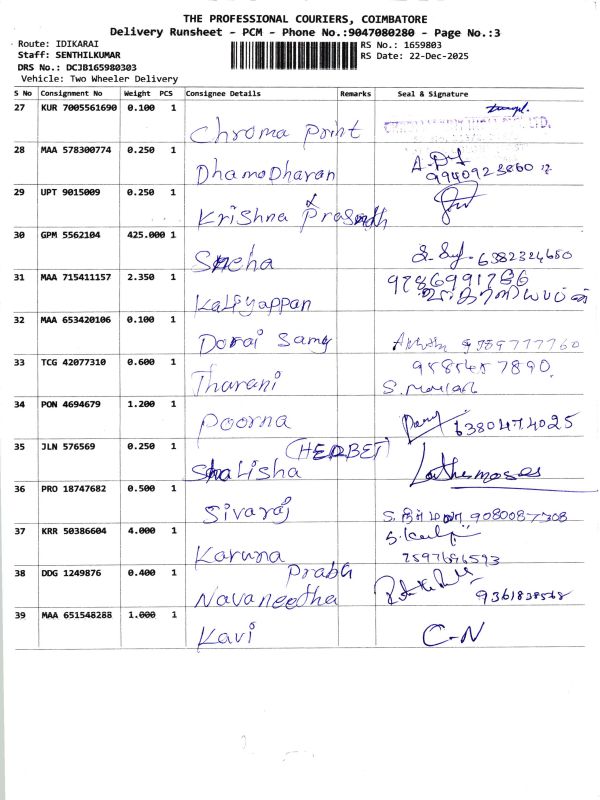 THE PROFESSIONAL COURIERS, COIMBATORE
Delivery Runsheet - PCM - Phone No.:9047080280 - Page No.:3
Route: IDIKARAI
RS No.: 1659803
Staff: SENTHILKUMAR
RS Date: 22-Dec-2025
DRS No.: DCJB165980303
Vehicle: Two Wheeler Delivery
S No Consignment No Weight PCS Consignee Details Remarks Seal & Signature
27 KUR 7005561690 0.100 1
Chroma Print
28 MAA 578300774 0.250 1
DhamoDharan
29 UPT 9015009 0.250 1
Krishna Prasandh
30 GPM 5562104 425.000 1
Sneha 6382324650
31 MAA 715411157 2.350 1
9786991786
Kaliyappan
32 MAA 653420106 0.100 1
Dorai Samy 9789777760
33 TCG 42077310 0.600 1
Tharani
34 PON 4694679 1.200 1
Poorna 6380474025
35 JLN 576569 0.250 1
(HERBET)
Shalisha
36 PRO 18747682 0.500 1
Sivaraj 9080087308
37 KRR 50386604 4.000 1
Karuna
38 DDG 1249876 0.400 1
Prabu
Navaneetha 9361838568
39 MAA 651548288 1.000 1
Kavi C-N